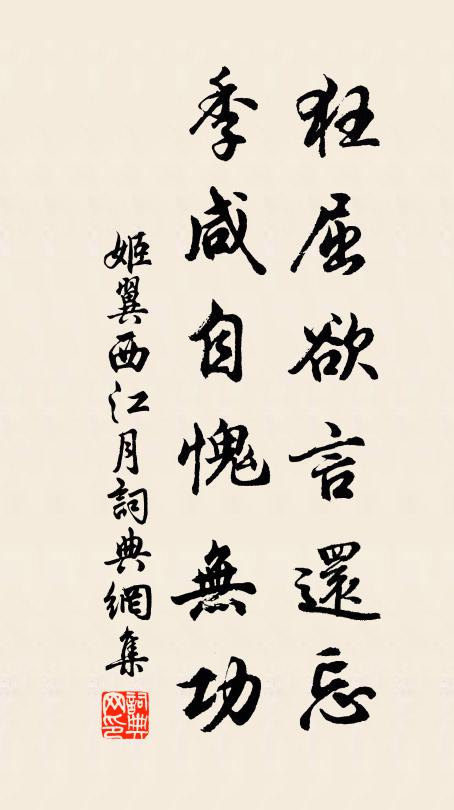 狂屈欲言還忘
季咸自愧無功
姬翼西江月詞典網集
詞典網印